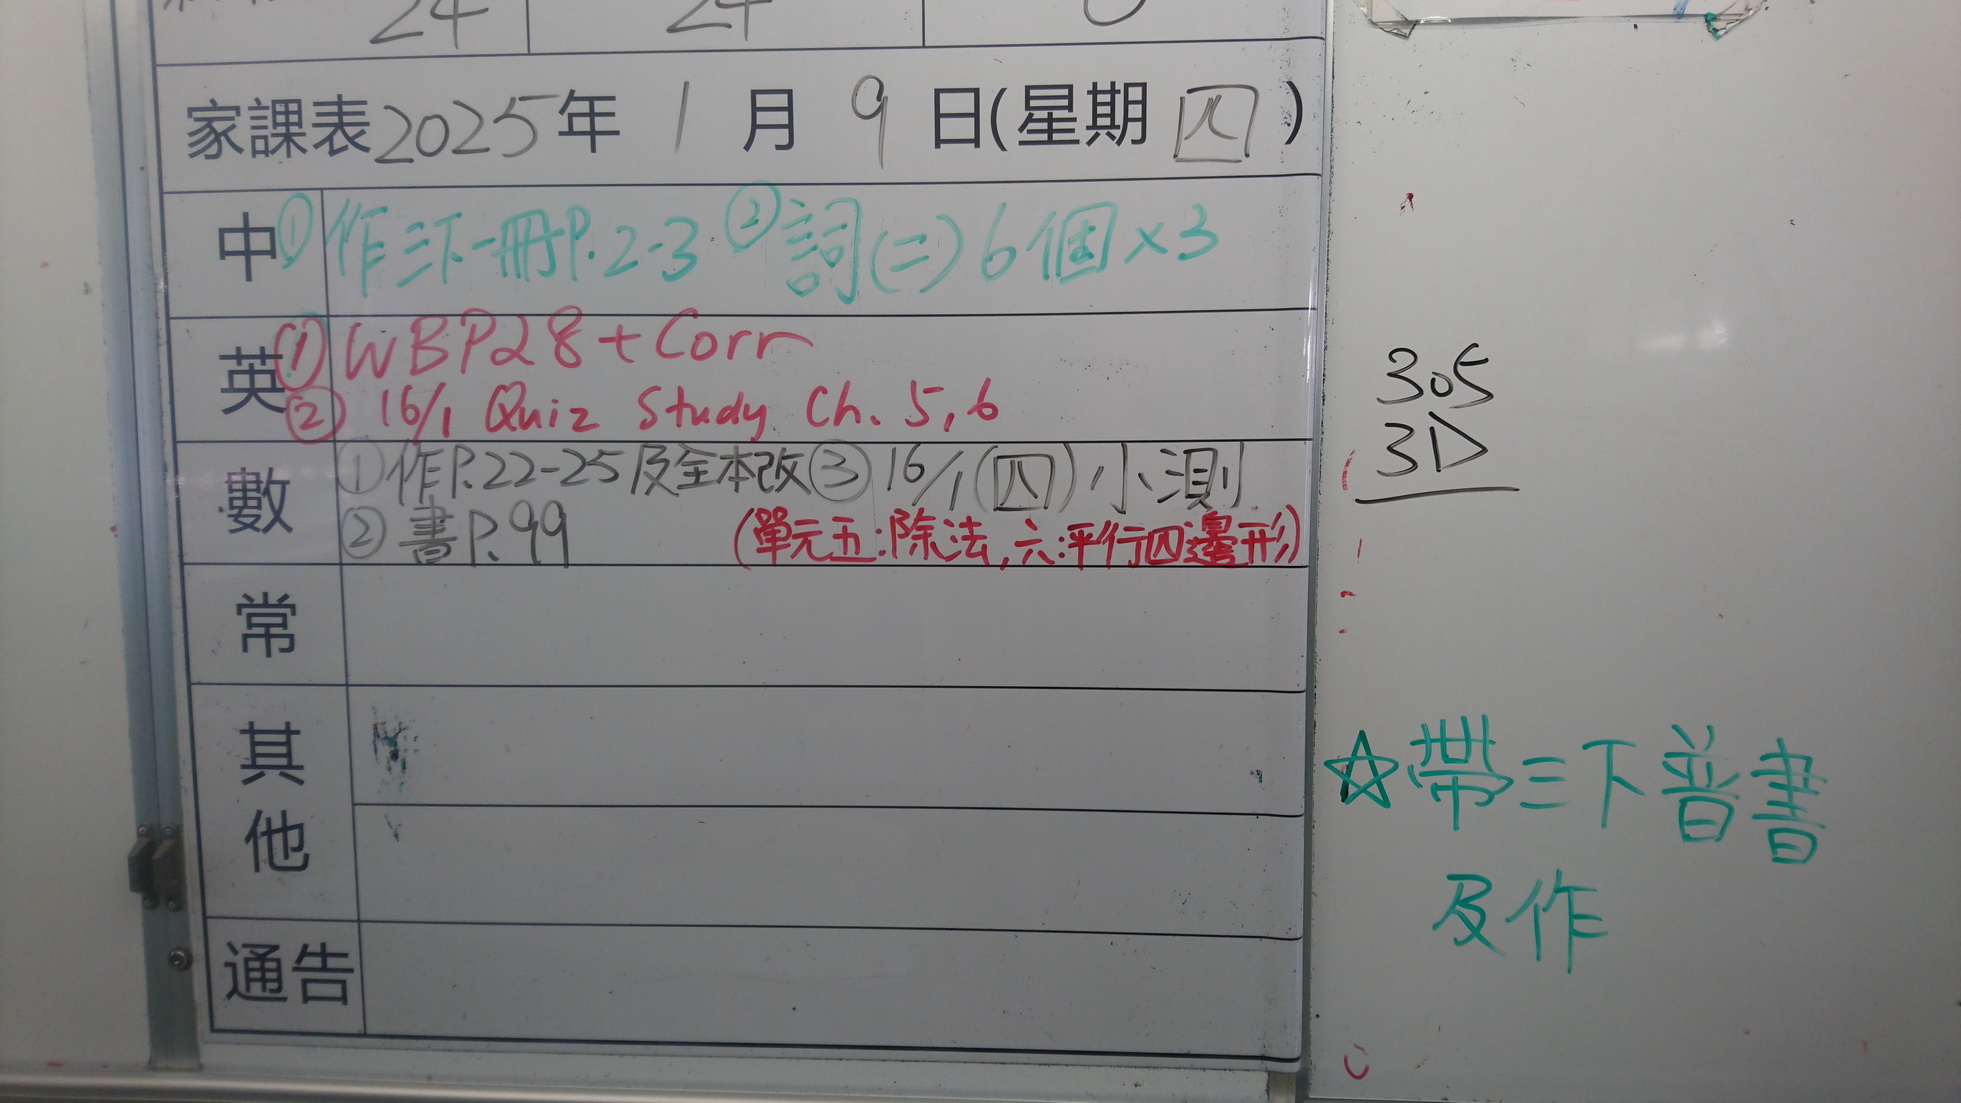 24 24
家課表2025年 1月 9日(星期四)
中 ①作三下一冊P.2-3 ②詞(二)6個×3
英 ①WBP28+Corr
② 16/1 Quiz Study Ch. 5,6
數 ①作P.22-25及全本改③16/1(四)小測
②書P.99 (單元五:除法,六:平行四邊形)
常
其他
通告
305
3D
☆帶三下普書
及作